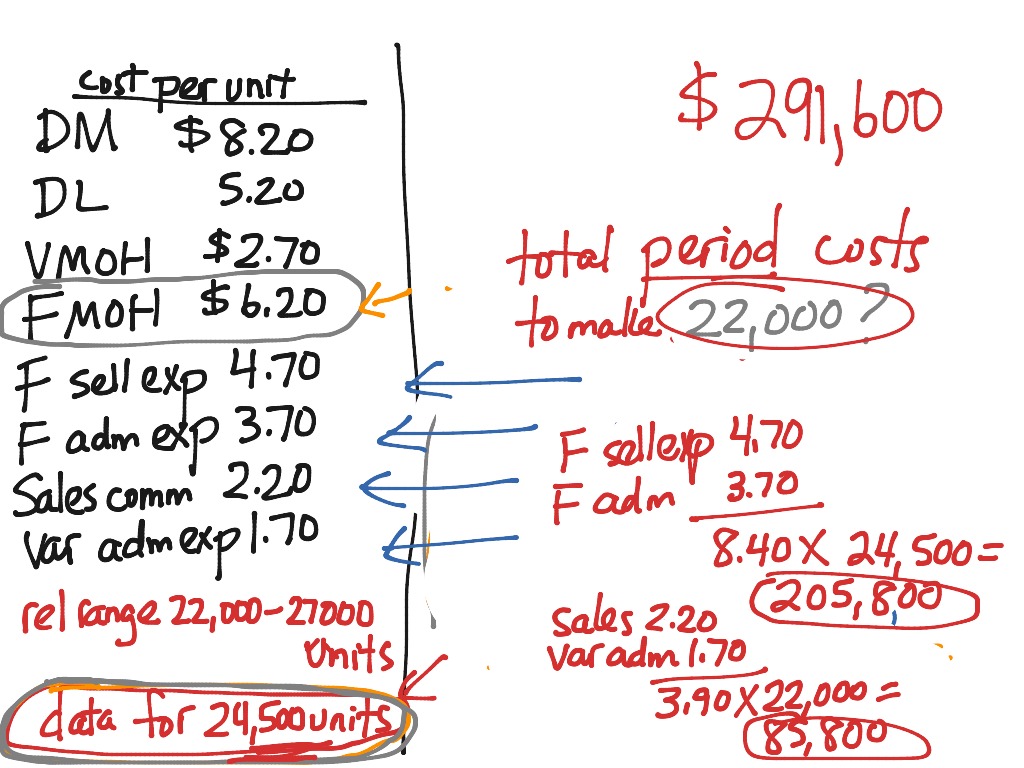 cost per unit
DM $8.20
DL 5.20
VMOH $2.70
FMOH $6.20
F sell exp 4.70
F adm exp 3.70
Sales comm 2.20
Var adm exp 1.70
rel range 22,000-27000
units
data for 24,500 units
$291,600
total period costs
to make 22,000?
F sell exp 4.70
F adm 3.70
8.40 X 24,500=
205,800
sales 2.20
var adm 1.70
3.90 X 22,000=
85,800